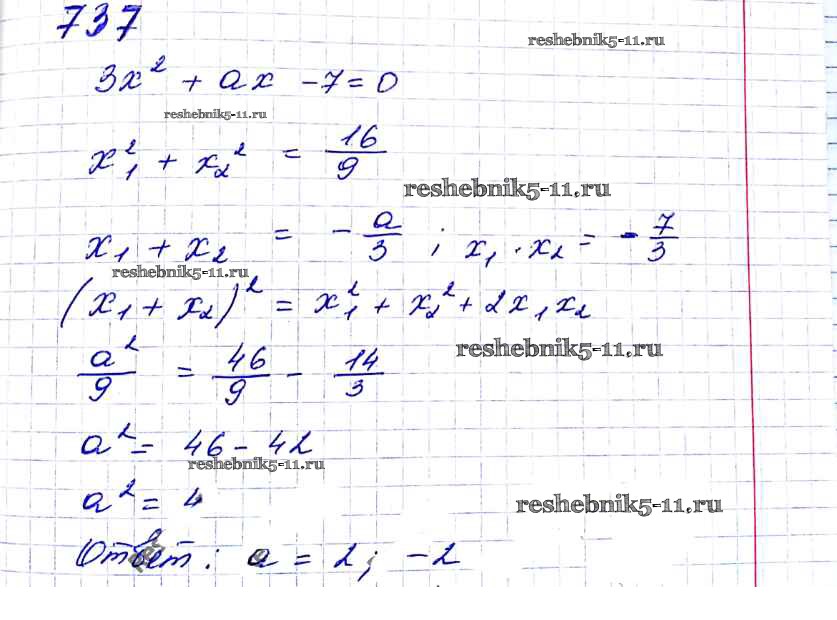 737
reshebnik5-11.ru
3x² + ax - 7 = 0
reshebnik5-11.ru
x₁² + x₂² = 16/9
reshebnik5-11.ru
x₁ + x₂ = - a/3 ; x₁ · x₂ = - 7/3
reshebnik5-11.ru
(x₁ + x₂)² = x₁² + x₂² + 2x₁x₂
reshebnik5-11.ru
a²/9 = 46/9 - 14/3
a² = 46 - 42
reshebnik5-11.ru
a² = 4
reshebnik5-11.ru
Ответ: a = 2; -2